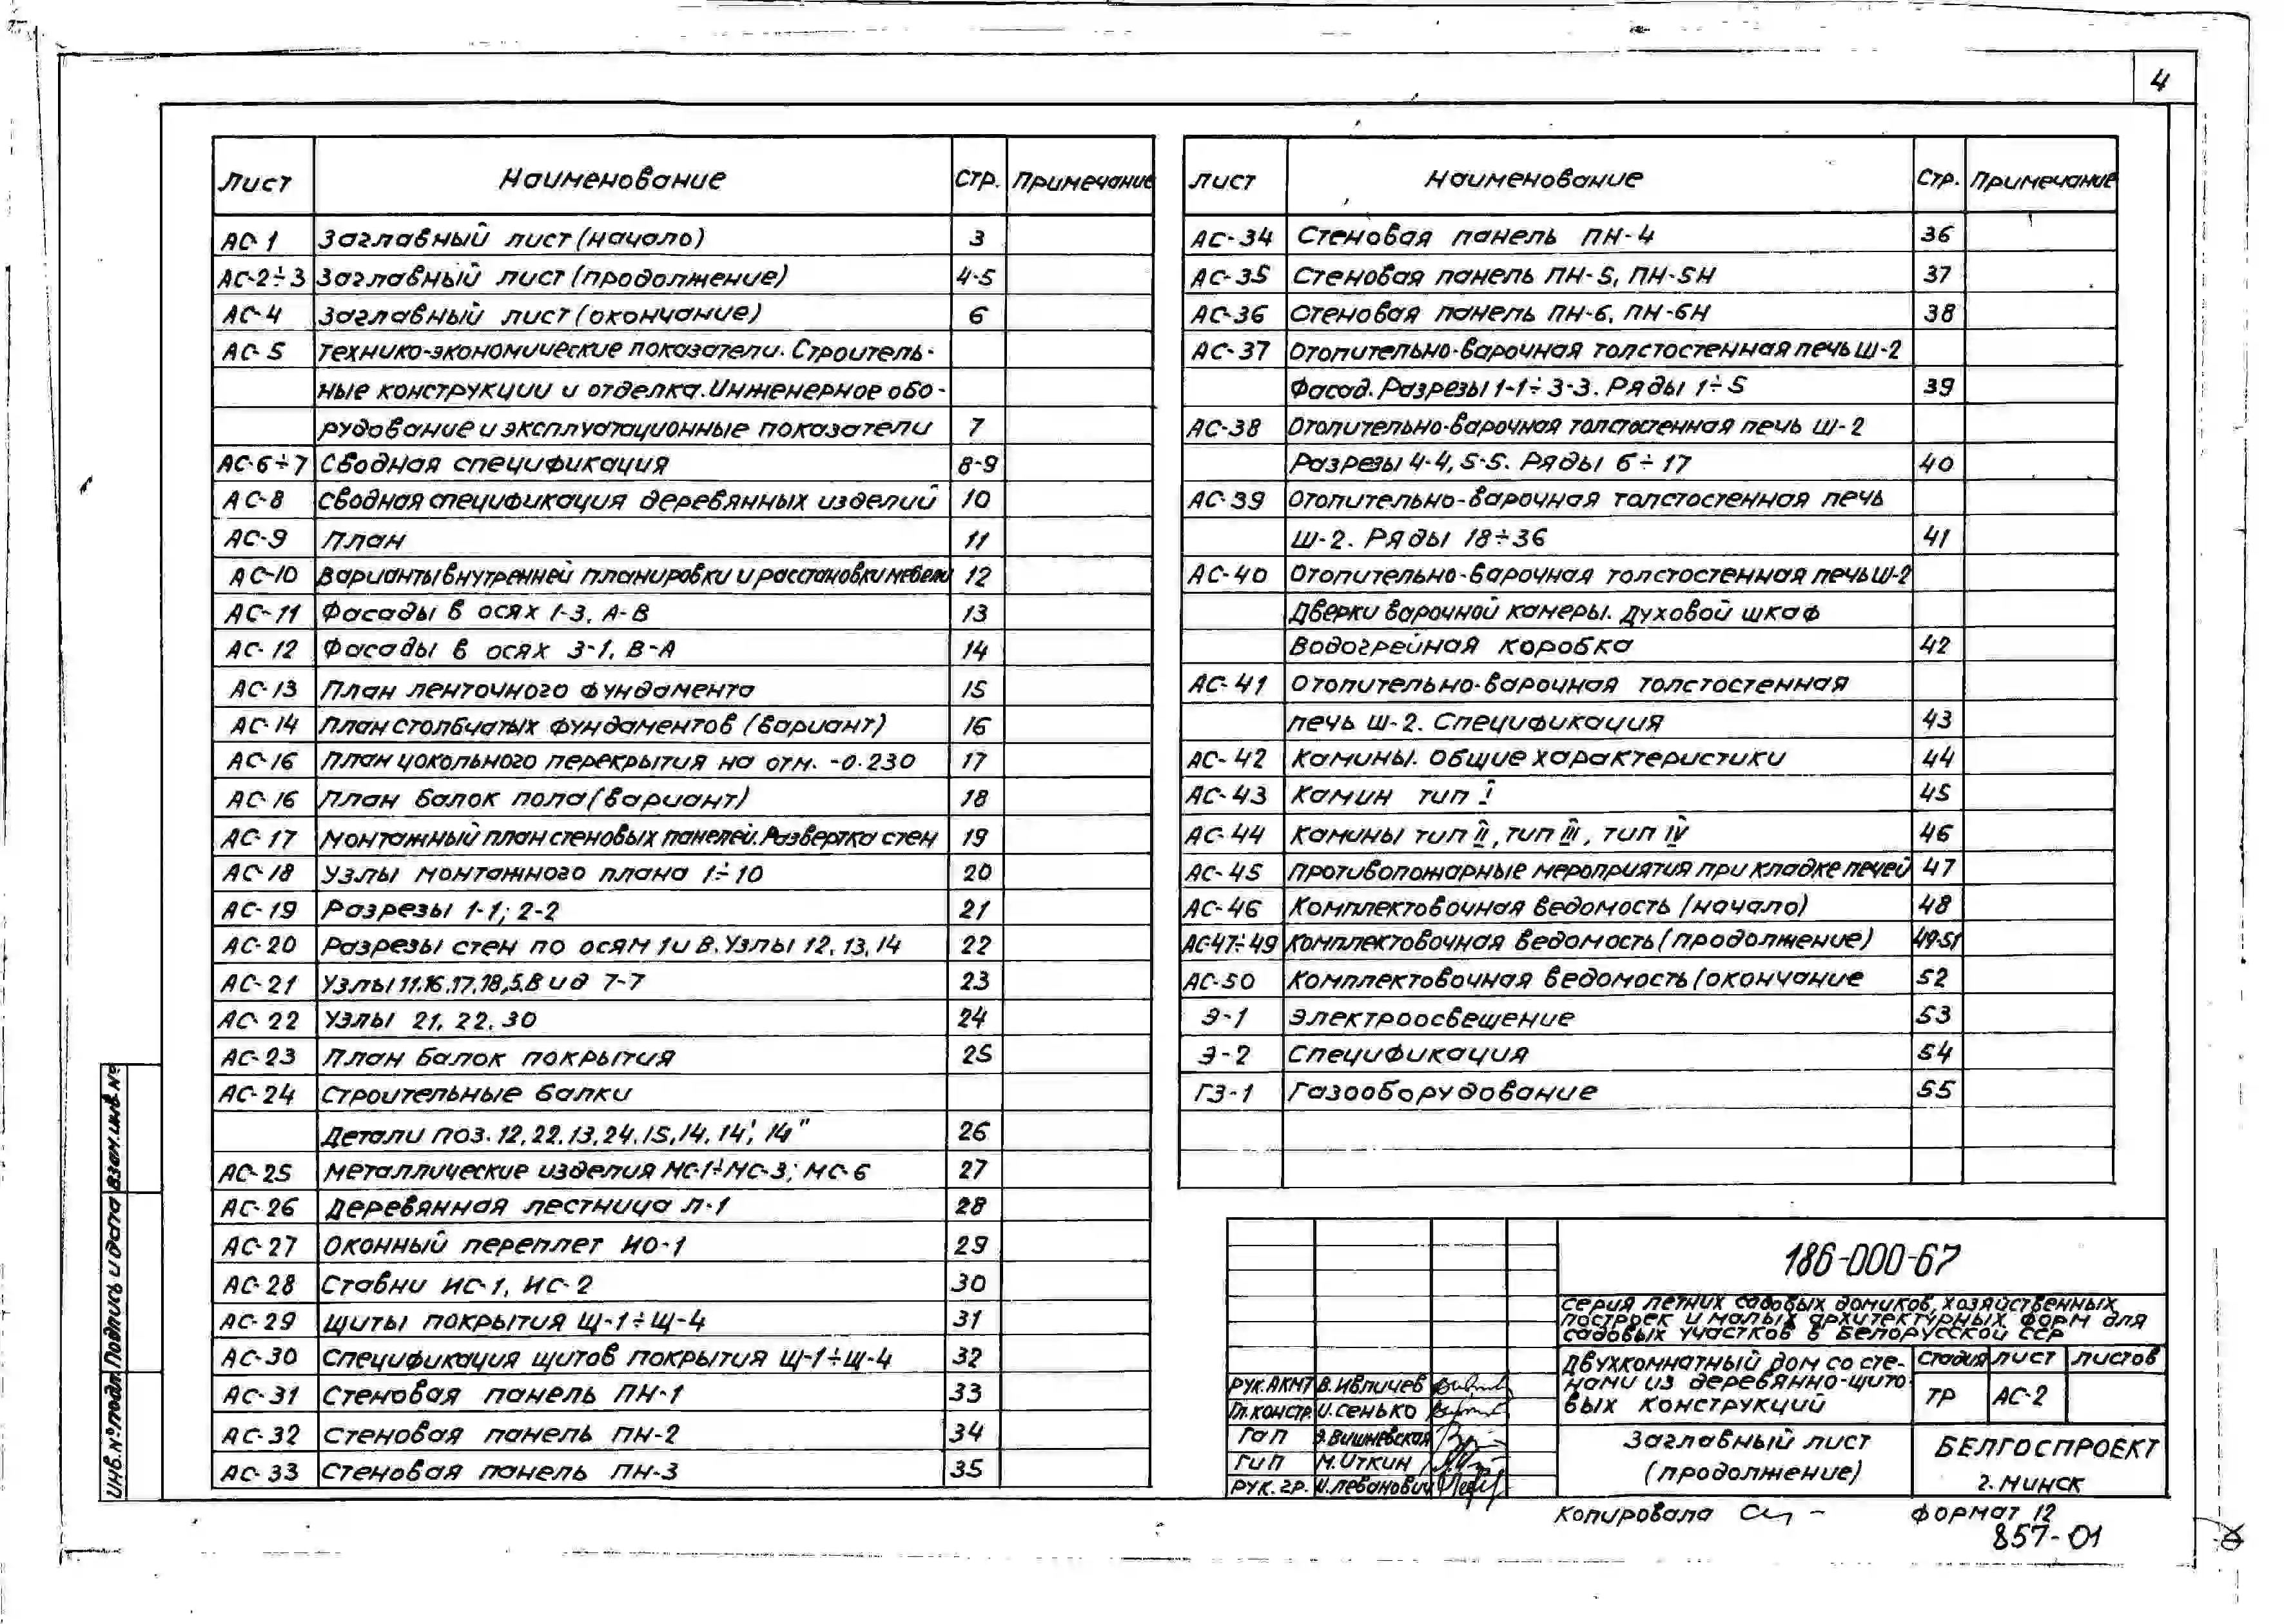 4
Лист Наименование Стр. Примечание
АС-1 Заглавный лист (начало) 3
АС-2÷3 Заглавный лист (продолжение) 4-5
АС-4 Заглавный лист (окончание) 6
АС-5 Технико-экономические показатели. Строитель-
ные конструкции и отделка. Инженерное обо-
рудование и эксплуатационные показатели 7
АС-6÷7 Сводная спецификация 8-9
АС-8 Сводная спецификация деревянных изделий 10
АС-9 План 11
АС-10 Варианты внутренней планировки и расстановки мебели 12
АС-11 Фасады в осях 1-3, А-В 13
АС-12 Фасады в осях 3-1, В-А 14
АС-13 План ленточного фундамента 15
АС-14 План столбчатых фундаментов (вариант) 16
АС-16 План цокольного перекрытия на отм. -0.230 17
АС-16 План балок пола (вариант) 18
АС-17 Монтажный план стеновых панелей. Развертка стен 19
АС-18 Узлы монтажного плана 1÷10 20
АС-19 Разрезы 1-1; 2-2 21
АС-20 Разрезы стен по осям 1 и В. Узлы 12, 13, 14 22
АС-21 Узлы 11.16.17.18,5. Вид 7-7 23
АС-22 Узлы 21, 22, 30 24
АС-23 План балок покрытия 25
АС-24 Строительные балки
Детали поз. 12, 22, 13, 24, 15, 14, 14', 14" 26
АС-25 Металлические изделия МС-1÷МС-3; МС-6 27
АС-26 Деревянная лестница Л-1 28
АС-27 Оконный переплет ИО-1 29
АС-28 Ставни ИС-1, ИС-2 30
АС-29 Щиты покрытия Щ-1÷Щ-4 31
АС-30 Спецификация щитов покрытия Щ-1÷Щ-4 32
АС-31 Стеновая панель ПН-1 33
АС-32 Стеновая панель ПН-2 34
АС-33 Стеновая панель ПН-3 35
Лист Наименование Стр. Примечание
АС-34 Стеновая панель ПН-4 36
АС-35 Стеновая панель ПН-5, ПН-5Н 37
АС-36 Стеновая панель ПН-6, ПН-6Н 38
АС-37 Отопительно-варочная толстостенная печь Ш-2
Фасад. Разрезы 1-1÷3-3. Ряды 1÷5 39
АС-38 Отопительно-варочная толстостенная печь Ш-2
Разрезы 4-4, 5-5. Ряды 6÷17 40
АС-39 Отопительно-варочная толстостенная печь
Ш-2. Ряды 18÷36 41
АС-40 Отопительно-варочная толстостенная печь Ш-2
Дверки варочной камеры. Духовой шкаф
Водогрейная коробка 42
АС-41 Отопительно-варочная толстостенная
печь Ш-2. Спецификация 43
АС-42 Камины. Общие характеристики 44
АС-43 Камин тип I 45
АС-44 Камины тип II, тип III, тип IV 46
АС-45 Противопожарные мероприятия при кладке печей 47
АС-46 Комплектовочная ведомость (начало) 48
АС47÷49 Комплектовочная ведомость (продолжение) 49-51
АС-50 Комплектовочная ведомость (окончание 52
Э-1 Электроосвещение 53
Э-2 Спецификация 54
ГЗ-1 Газооборудование 55
Инв. № подл. Подпись и дата Взам. инв. №
186-000-67
Серия летних садовых домиков, хозяйственных
построек и малых архитектурных форм для
садовых участков в Белорусской ССР
Двухкомнатный дом со сте-
нами из деревянно-щито-
вых конструкций
Стадия Лист Листов
ТР АС-2
Рук. АКМТ В. Ивличев
Гл. констр. И. Сенько
ГАП Э. Вишневская
ГИП М. Иткин
Рук. гр. И. Леванович
Заглавный лист
(продолжение)
БЕЛГОСПРОЕКТ
г. Минск
Копировала Формат 12
857-01